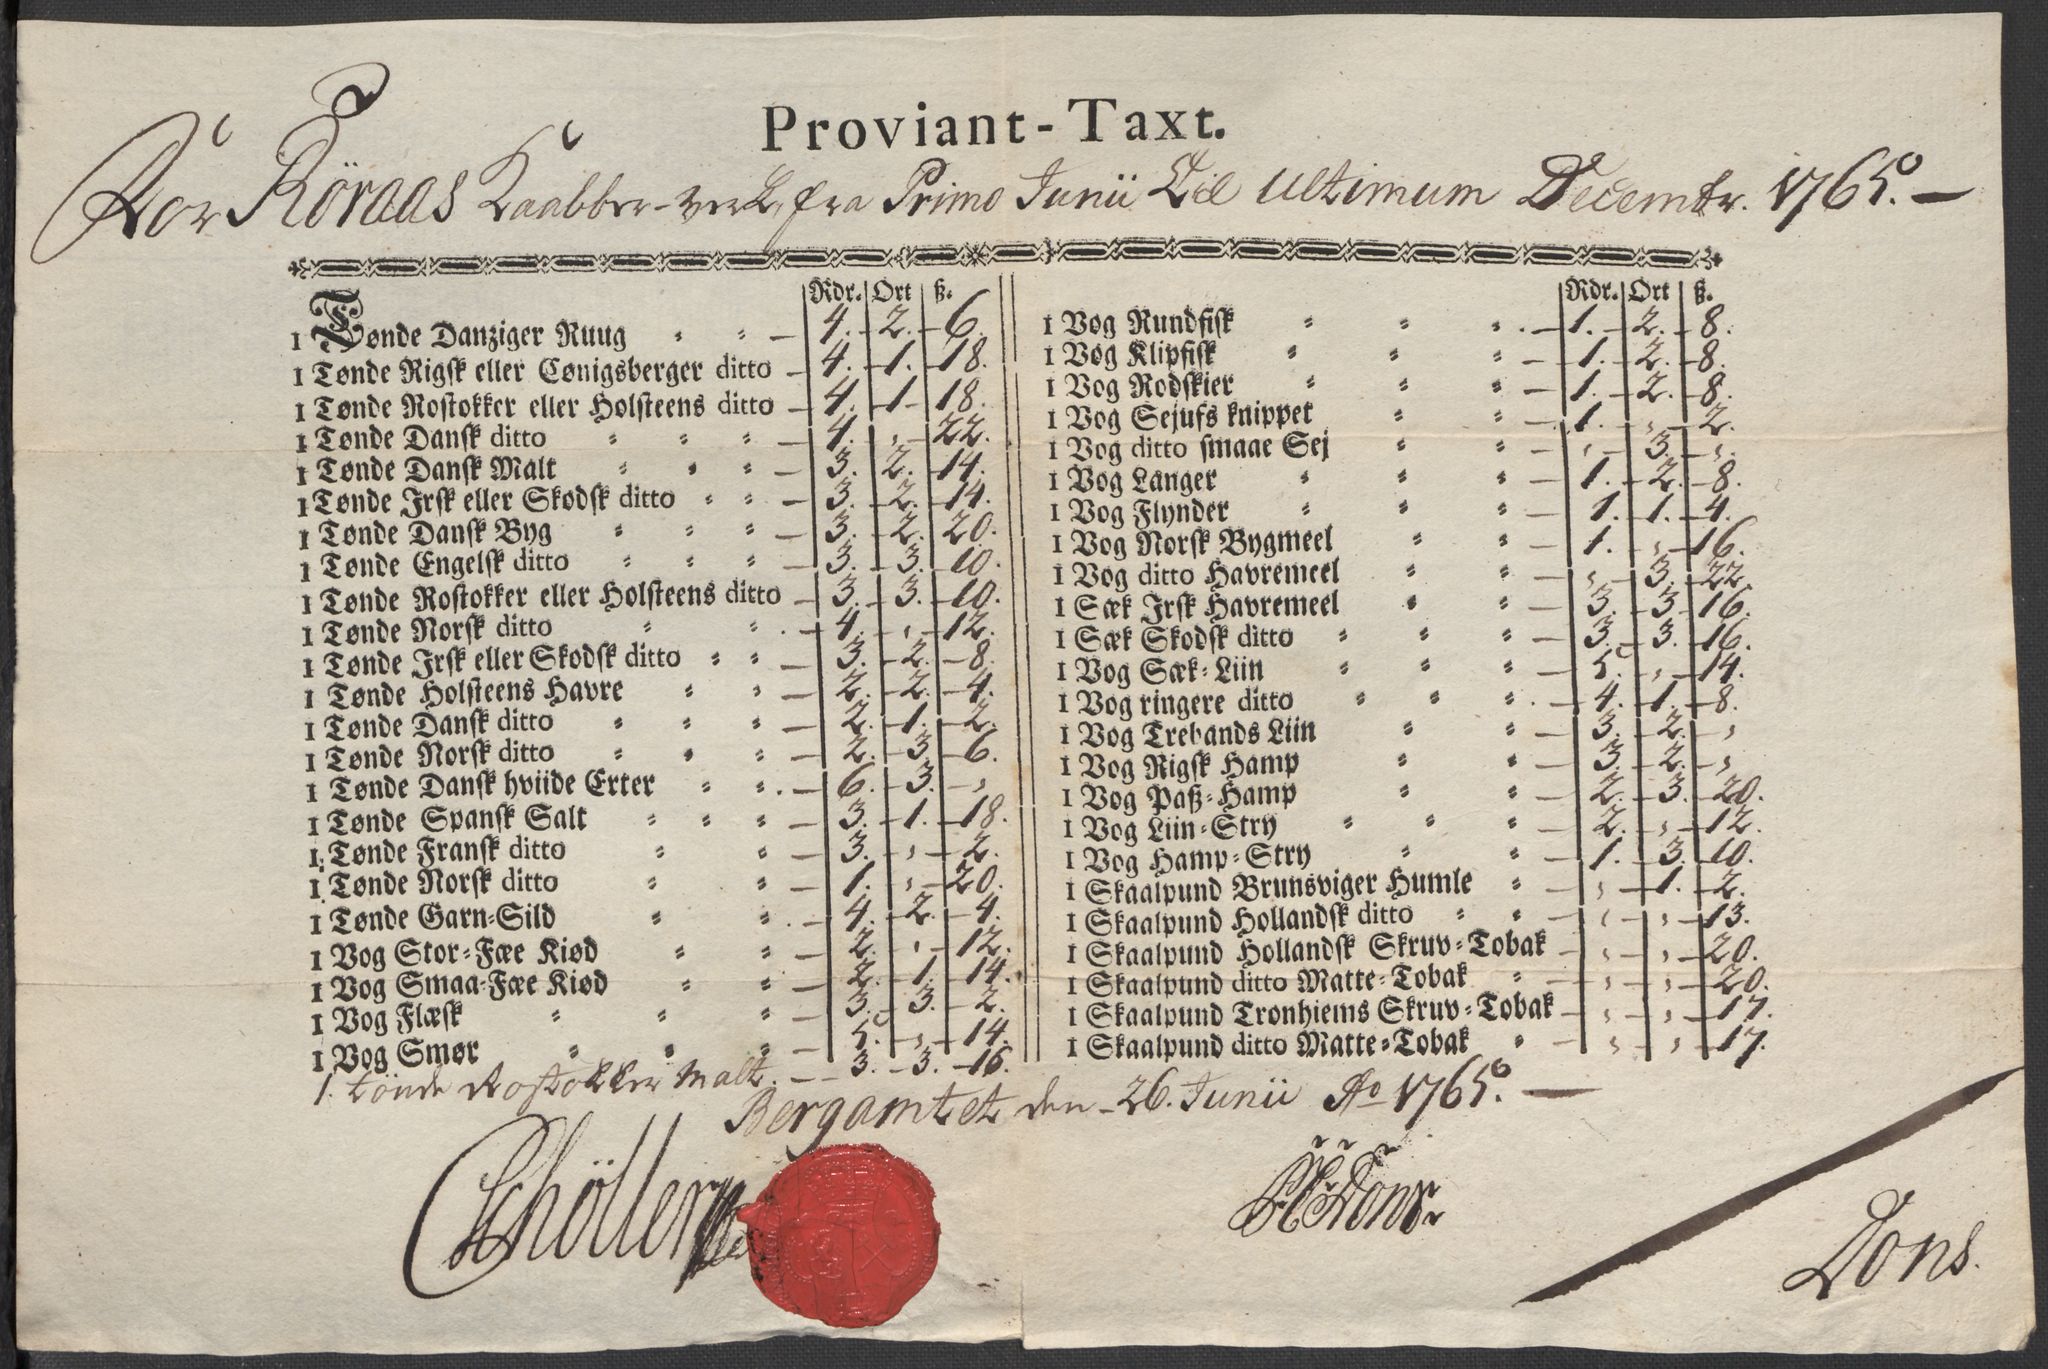 Proviant-Taxt.
For Röraas Kaabber-verk, fra Primo Junii Til Ultimum Decembr. 1765.
Rdr. Ort ß.
1 Tønde Danziger Ruug 4. 2. 6.
1 Tønde Rigsk eller Cønigsberger ditto 4. 1. 18.
1 Tønde Rostokker eller Holsteens ditto 4. 1 18.
1 Tønde Dansk ditto 4. , 22.
1 Tønde Dansk Malt 3. 2. 14.
1 Tønde Irsk eller Skodsk ditto 3. 2. 14.
1 Tønde Dansk Byg 3. 2. 20.
1 Tønde Engelsk ditto 3. 3. 10.
1 Tønde Rostokker eller Holsteens ditto 3. 3. 10.
1 Tønde Norsk ditto 4. , 12.
1 Tønde Irsk eller Skodsk ditto 3. 2. 8.
1 Tønde Holsteens Havre 2. 2. 4.
1 Tønde Dansk ditto 2. 1. 2.
1 Tønde Norsk ditto 2. 3. 6.
1 Tønde Dansk hviide Erter 6. 3. ,
1 Tønde Spansk Salt 3. 1. 18.
1 Tønde Fransk ditto 3. , 2.
1 Tønde Norsk ditto 1. , 20.
1 Tønde Garn-Sild 4. 2. 4.
1 Vog Stor-Fæe Kiød 2. , 12.
1 Vog Smaa-Fæe Kiød 2. 1. 14.
1 Vog Flæsk 3. 3. 2.
1 Vog Smør 5. , 14.
1. tönde Rostokker Malt. 3. 3. 16.
Rdr. Ort ß.
1 Vog Rundfisk 1. 2. 8.
1 Vog Klipfisk 1. 2. 8.
1 Vog Rodskier 1. 2. 8.
1 Vog Sejufs knippet 1. , 2.
1 Vog ditto smaae Sej , 3. ,
1 Vog Langer 1. 2. 8.
1 Vog Flynder 1. 1. 4.
1 Vog Norsk Bygmeel 1. , 16.
1 Vog ditto Havremeel , 3. 22.
1 Sæk Irsk Havremeel 3. 3. 16.
1 Sæk Skodsk ditto 3. 3. 16.
1 Vog Sæk-Liin 5. , 14.
1 Vog ringere ditto 4. 1. 8.
1 Vog Trebands Liin 3. 2. ,
1 Vog Rigsk Hamp 3. 2. ,
1 Vog Paß-Hamp 2. 3. 20.
1 Vog Liin-Stry 2. , 12.
1 Vog Hamp-Stry 1. 3. 10.
1 Skaalpund Brunsviger Humle , 1. 2.
1 Skaalpund Hollandsk ditto , , 13.
1 Skaalpund Hollandsk Skruv-Tobak , , 20.
1 Skaalpund ditto Matte-Tobak , , 20.
1 Skaalpund Tronhiems Skruv-Tobak , , 17.
1 Skaalpund ditto Matte-Tobak , , 17.
Bergamtet den 26. Junii Ao 1765.
Schöller
Dons
Dons.